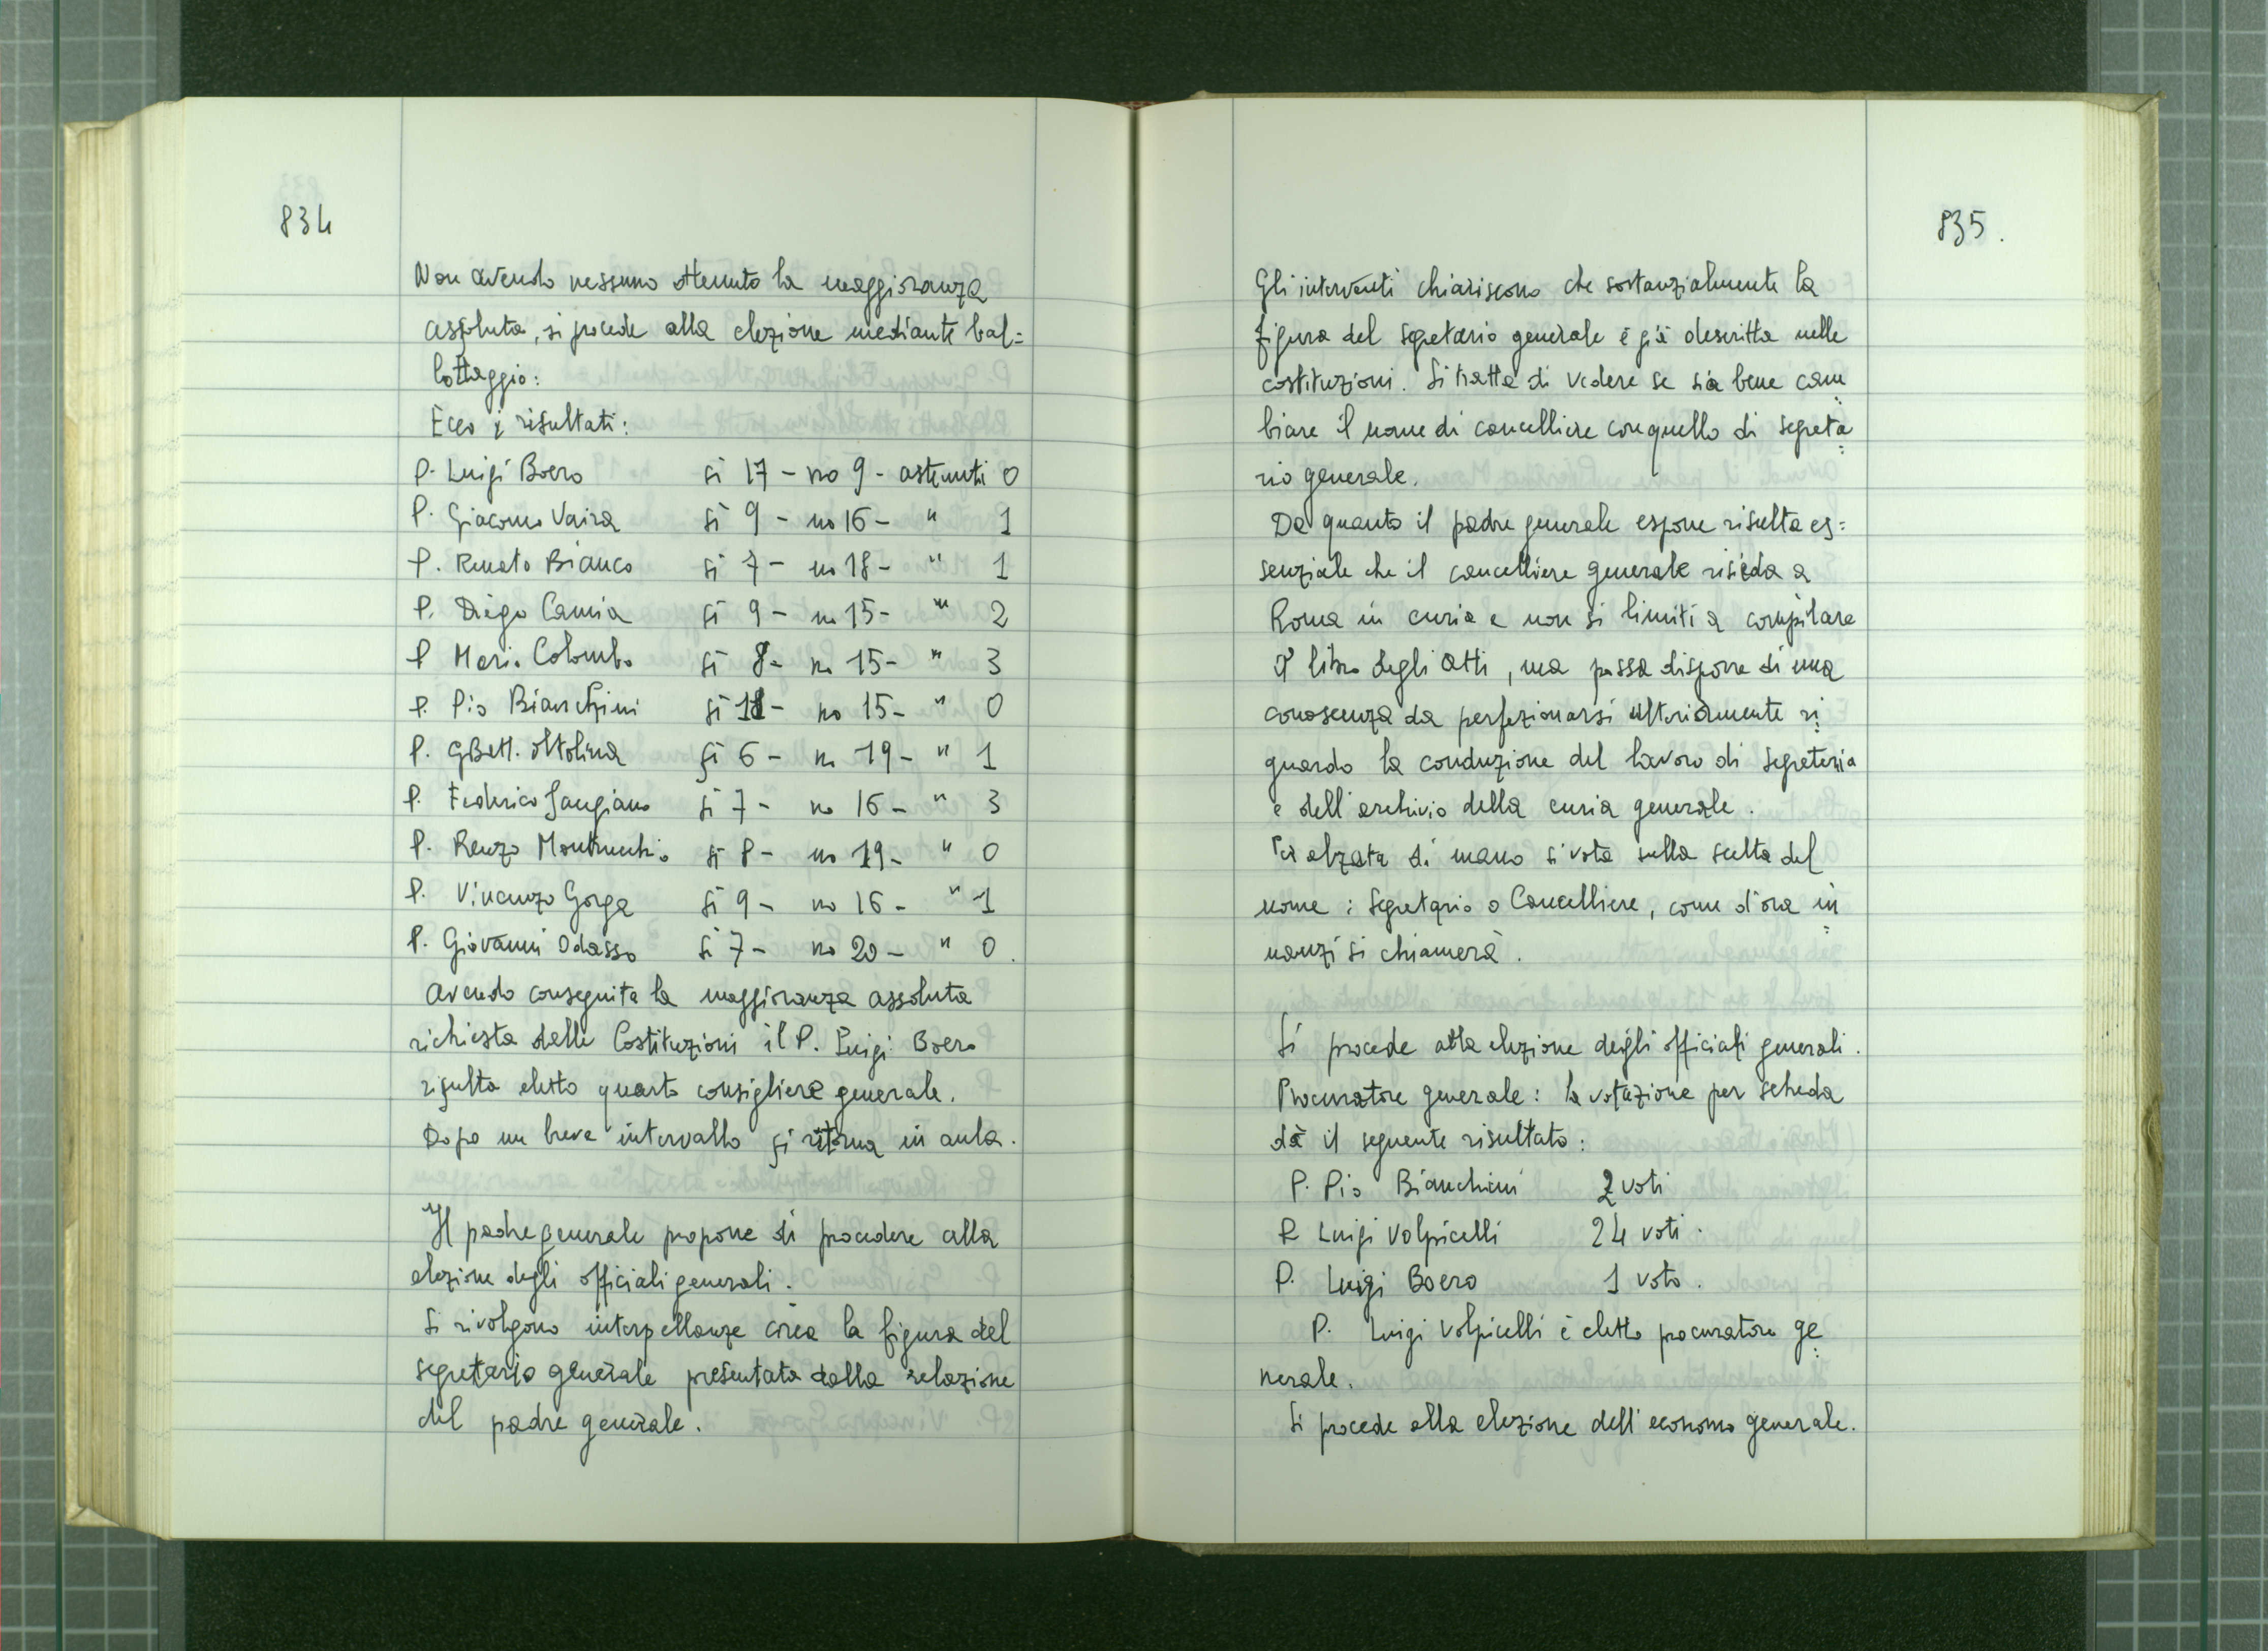 834
Non avendo nessuno ottenuto la maggioranza
assoluta, si procede alla elezione mediante bal=
lottaggio:
Ecco i risultati:
P. Luigi Boero si 17 - no 9 - astenuti 0
P. Giacomo Vaira si 9 - no 16 - " 1
P. Renato Bianco si 7 - no 18 - " 1
P. Diego Camia si 9 - no 15 - " 2
P Mario Colombo si 8 - no 15 - " 3
P. Pio Bianchini si - no 15 - " 0
P. GBatt. Oltolina si 6 - no 19 - " 1
P. Federico Sangiano si 7 - no 16 - " 3
P. Renzo Montrucchio si 8 - no 19 - " 0
P. Vincenzo Gorga si 9 - no 16 - " 1
P. Giovanni Odasso si 7 - no 20 - " 0.
Avendo conseguita la maggioranza assoluta
richiesta dalle Costituzioni il P. Luigi Boero
risulta eletto quarto consigliere generale.
Dopo un breve intervallo si ritorna in aula.
Il padre generale propone di procedere alla
elezione degli officiali generali.
Si rivolgono interpellanze circa la figura del
segretario generale presentata dalla relazione
del padre generale.
835.
Gli interventi chiariscono che sostanzialmente la
figura del segretario generale è già descritta nelle
costituzioni. Si tratta di vedere se sia bene cam=
biare il nome di cancelliere con quello di segreta=
rio generale.
Da quanto il padre generale espone risulta es=
senziale che il cancelliere generale risieda a
Roma in curia e non si limiti a compilare
il libro degli Atti, ma possa disporre di una
conoscenza da perfezionarsi ulteriormente ri=
guardo la conduzione del lavoro di segreteria
e dell'archivio della curia generale.
Per alzata di mano si vota sulla scelta del
nome: Segretario o Cancelliere, come d'ora in=
nanzi si chiamerà.
Si procede alla elezione degli officiali generali.
Procuratore generale: la votazione per scheda
dà il seguente risultato:
P. Pio Bianchini 2 voti
P. Luigi Volpicelli 24 voti.
P. Luigi Boero 1 voto.
P. Luigi Volpicelli è eletto procuratore ge=
nerale.
Si procede alla elezione dell'economo generale.